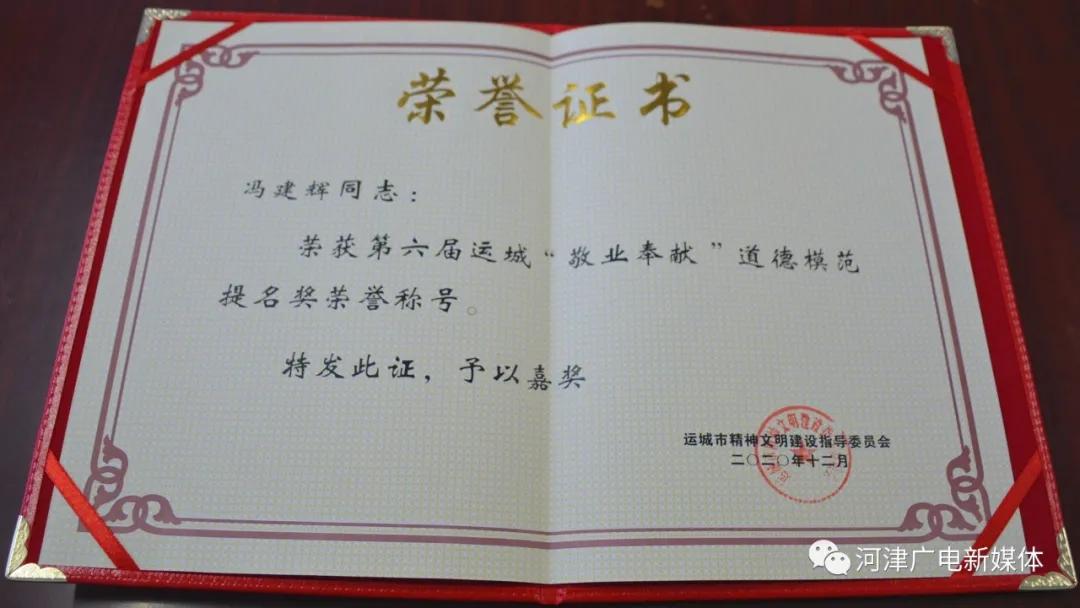 荣誉证书
冯建辉同志：
荣获第六届运城“敬业奉献”道德模范
提名奖荣誉称号。
特发此证，予以嘉奖
运城市精神文明建设指导委员会
二〇二〇年十二月
河津广电新媒体